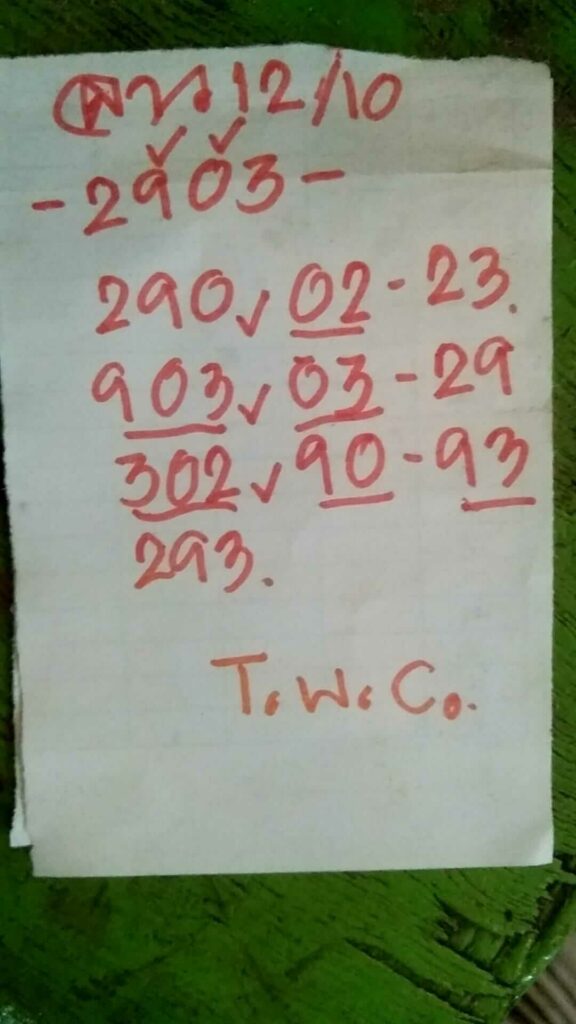 ลาว 12/10
- 2903 -
290 ✓ 02 - 23.
903 ✓ 03 - 29
302 ✓ 90 - 93
293.
T. W. C.